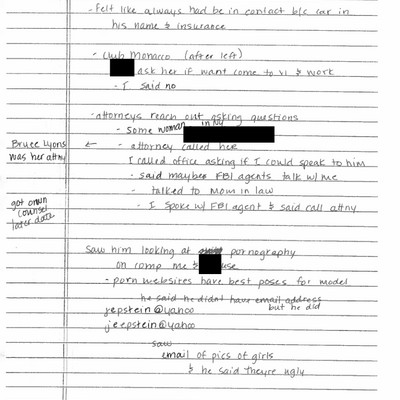 - Felt like always had be in contact b/c car in
his name & insurance
- Club Monaco (after left)
ask her if want come to VI & work
- I said no
- attorneys reach out asking questions
- some woman in NY
Bruce Lyons was her attny ← - attorney called her
I called office asking if I could speak to him
- said maybe FBI agents talk w/ me
- talked to mom in law
got own counsel later date
- I spoke w/ FBI agent & said call attny
Saw him looking at pornography
on comp me & use
- porn websites have best poses for model
he said he didn't have email address
but he did
jepstein@yahoo
jeepstein@yahoo
saw
email of pics of girls
& he said they're ugly